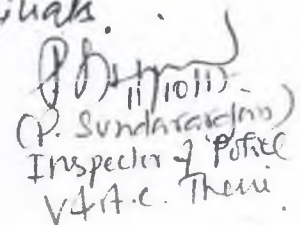 11/10/11
(P. Sundararajan)
Inspector of Police
V & A.C. Theni.